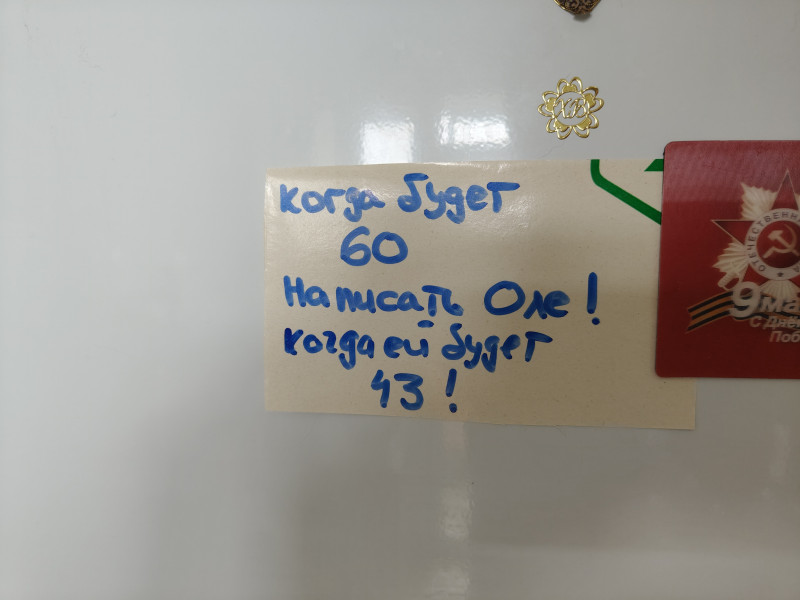 ХВ
когда будет
60
Написать Оле!
когда ей будет
43!
ОТЕЧЕСТВЕННАЯ
9 ма
С Днём
Поб